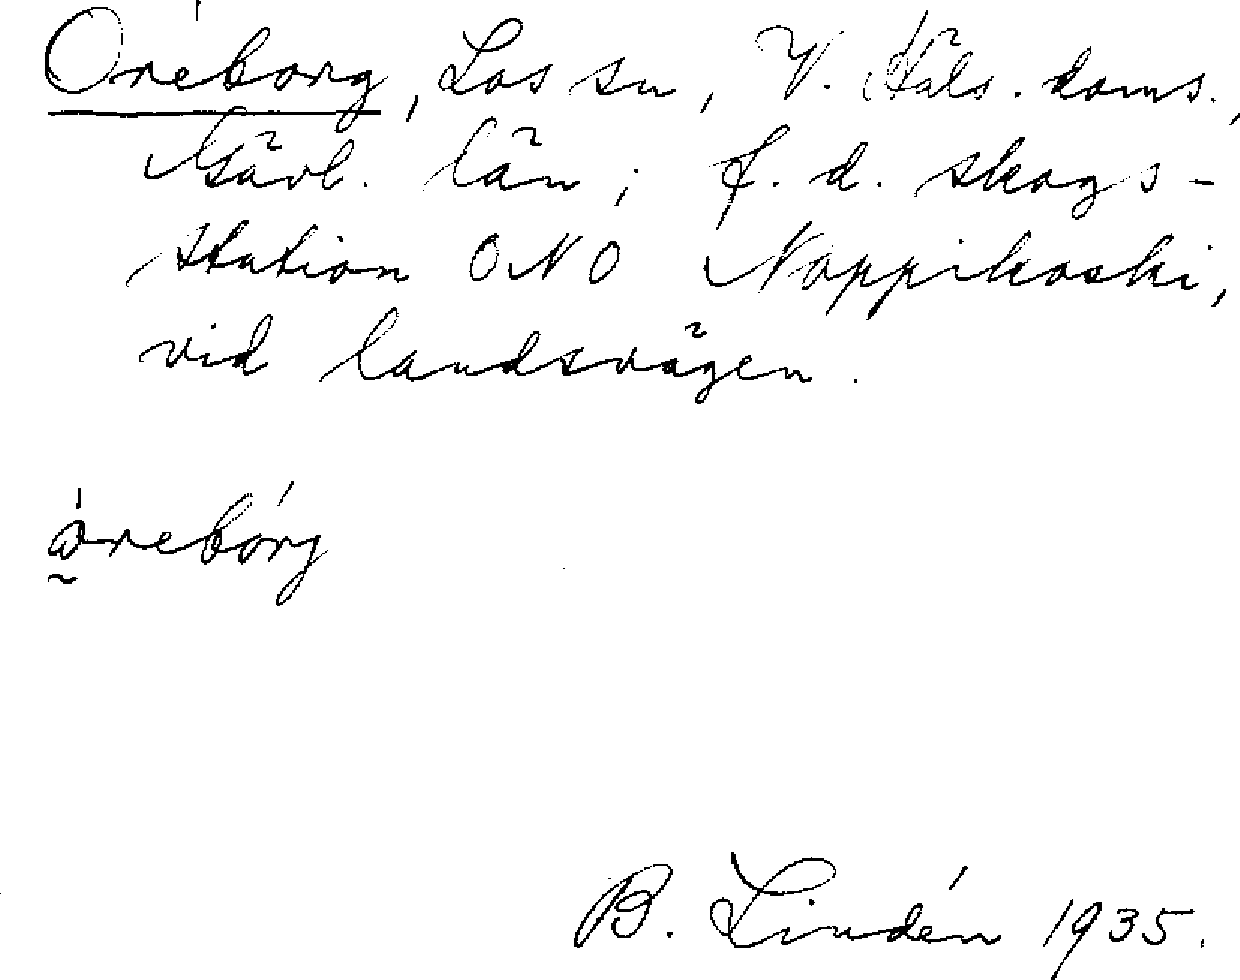 Oréborg, Los sn, V. Häls. doms.,
Gävl. län; f. d. skogs-
station ONO Noppikoski,
vid landsvägen.
òrebórg
B. Lindén 1935.